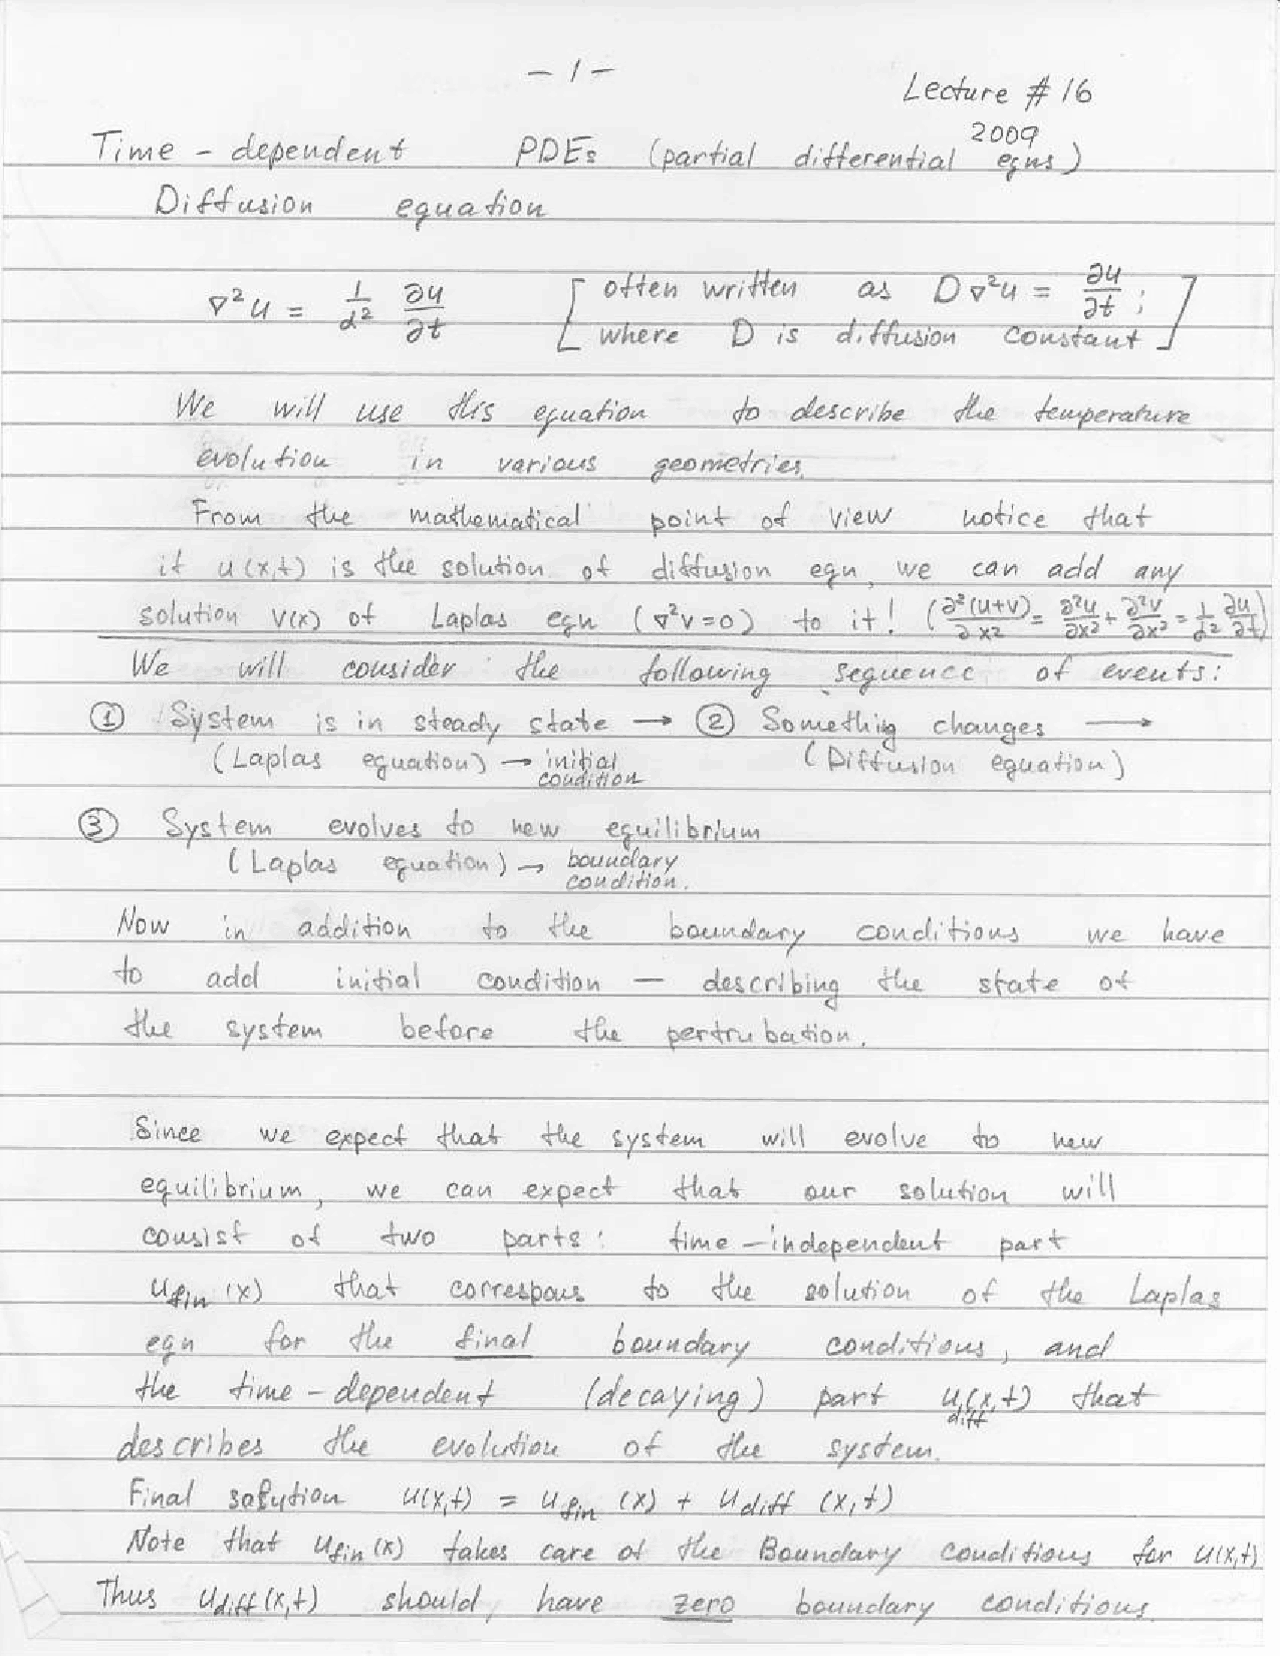 - 1 -
Lecture # 16
2009
Time - dependent PDEs (partial differential eqns)
Diffusion equation
∇²u = 1/α² ∂u/∂t [often written as D∇²u = ∂u/∂t;
where D is diffusion constant]
We will use this equation to describe the temperature
evolution in various geometries.
From the mathematical point of view notice that
if u(x,t) is the solution of diffusion eqn, we can add any
solution v(x) of Laplas eqn (∇²v=0) to it! (∂²(u+v)/∂x² = ∂²u/∂x² + ∂²v/∂x² = 1/α² ∂u/∂t)
We will consider the following sequence of events:
① System is in steady state → ② Something changes →
(Laplas equation) → initial condition (Diffusion equation)
③ System evolves to new equilibrium
(Laplas equation) → boundary condition.
Now in addition to the boundary conditions we have
to add initial condition — describing the state of
the system before the pertrubation.
Since we expect that the system will evolve to new
equilibrium, we can expect that our solution will
consist of two parts: time-independent part
u_fin (x) that correspons to the solution of the Laplas
eqn for the final boundary conditions, and
the time-dependent (decaying) part u_diff(x,t) that
describes the evolution of the system.
Final solution u(x,t) = u_fin (x) + u_diff (x,t)
Note that u_fin(x) takes care of the Boundary conditions for u(x,t)
Thus u_diff(x,t) should have zero boundary conditions.